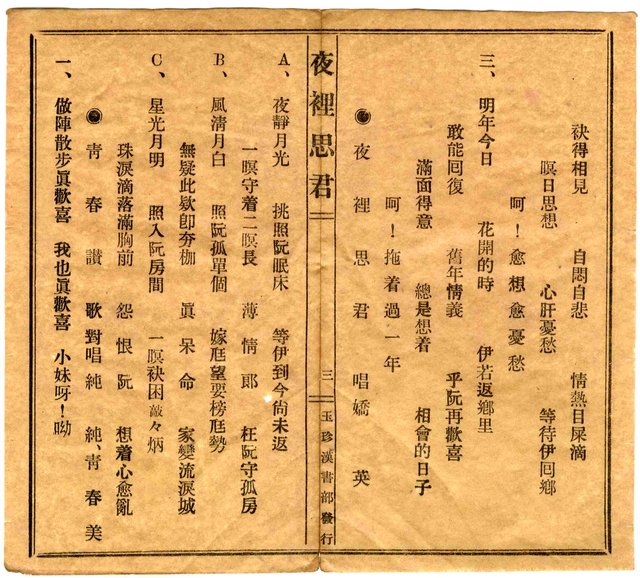 袂得相見　自悶自悲　情熱目屎滴
暝日思想　心肝憂愁　等待伊囘鄉
呵！愈想愈憂愁
三、明年今日　花開的時　伊若返鄉里
敢能回復　舊年情義　乎阮再歡喜
滿面得意　總是想着　相會的日子
呵！拖着過一年
夜裡思君　唱嬌英
夜裡思君　三　玉珍漢書部發行
A、夜靜月光　挑照阮眠床　等伊到今尙未返
一暝守着二暝長　薄情郎　枉阮守孤房
B、風淸月白　照阮孤單個　嫁尫望要榜尫勢
無疑此欵卽夯枷　眞呆命　家變流淚城
C、星光月明　照入阮房間　一暝袂困敲々炳
珠淚滴落滿胸前　怨恨阮　想着心愈亂
靑春讃歌　對唱　純純、靑春美
一、做陣散步眞歡喜　我也眞歡喜　小妹呀！呦